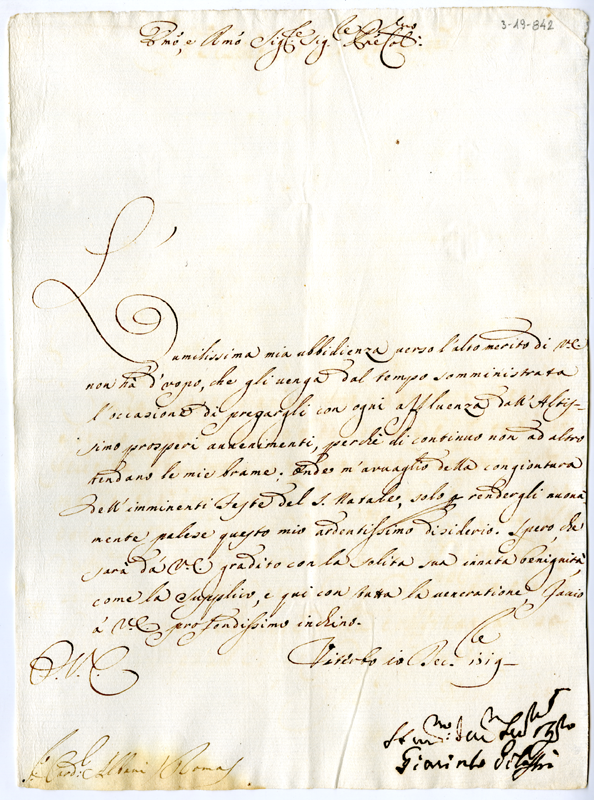 3-19-842
Emo, e Rmo Sigre Sigr. e Pne Colmo:
L'umilissima mia ubbidienza verso l'alto merito di V.E
non há d'vopo, che gli uenga dal tempo somministrata
l'occasione di pregargli con ogni affluenza dall'Altis-
simo prosperi auuenimenti, perche di continuo non ad altro
tendano le mie brame; onde m'avuaglio della congiontura
dell'imminenti feste del S. Natale, solo p rendergli nuoua
mente palese questo mio ardentissimo disiderio. Spero, che
sarà da V.E gradito con la solita sua innata benignità,
come la supplico, e qui con tutta la veneratione faccio
á V.E profondissimo inchino.
Viterbo 10 Xcbre 1719
D. V. E.
Giacinto
Sr Card. Albani Roma